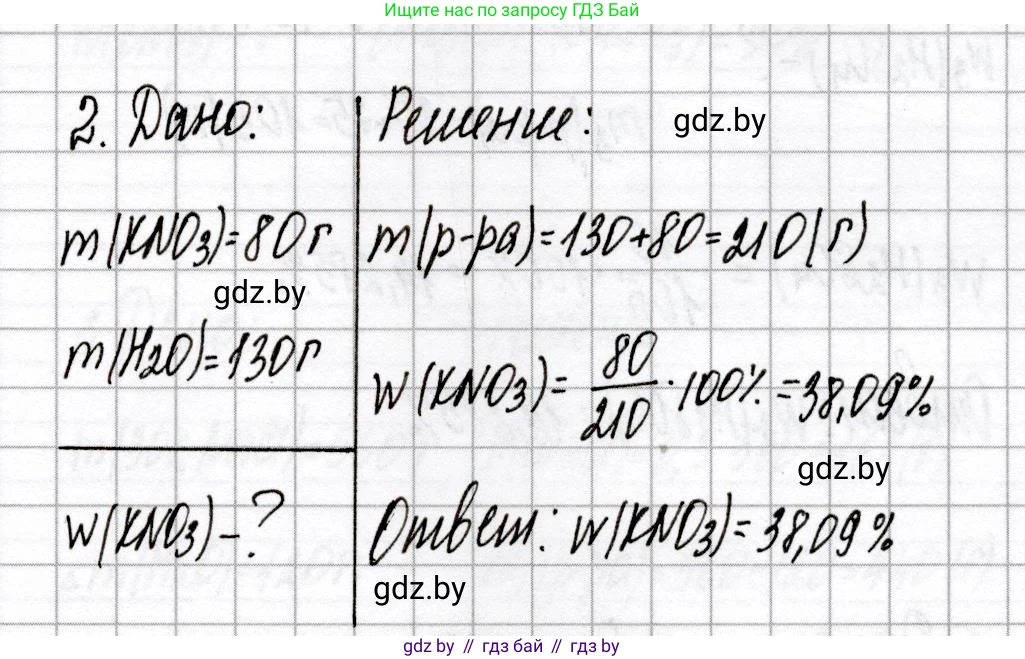 Ищите нас по запросу ГДЗ Бай
2. Дано:
Решение:
gdz.by
m(KNO3)=80г
m(р-ра)=130+80=210(г)
gdz.by
m(H2O)=130г
w(KNO3)= 80/210 · 100% =38,09%
gdz.by
w(KNO3)-?
Ответ: w(KNO3)=38,09%
gdz.by
gdz by // гдз бай // gdz by